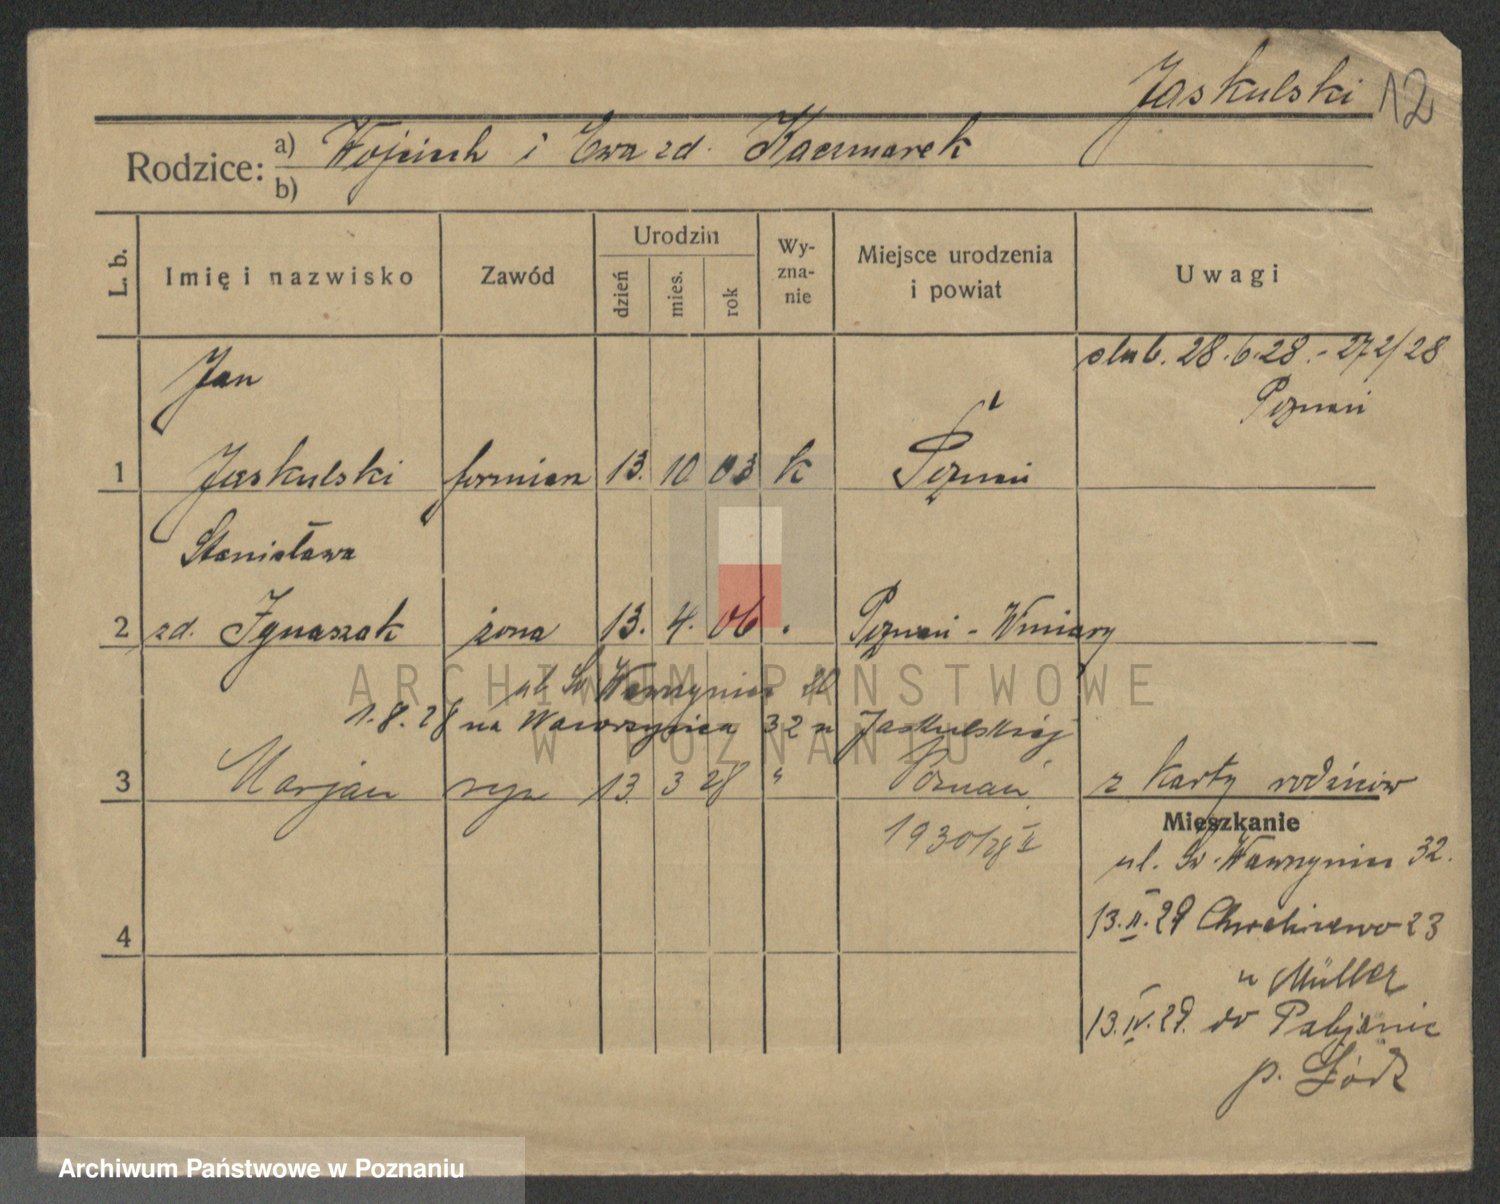 Jaskulski 12
Rodzice: a) Wojciech i Ewa zd. Kaczmarek
b)
L. b.
Imię i nazwisko
Zawód
Urodzin
dzień
mies.
rok
Wy-
zna-
nie
Miejsce urodzenia
i powiat
Uwagi
Jan
ślub. 28.6.28. - 272/28
Poznań
1 Jaskulski formierz 13. 10 03 k Poznań
Stanisława
2 zd. Ignaszak żona 13. 4. 06 Poznań - Winiary
ul. Św. Wawrzyńca
1.8.28 na Wawrzyńca 32 u Jaskulskiej
3 Marjan syn 13. 3 28 " Poznań z karty rodziców
1930/28 II
Mieszkanie
ul. Św. Wawrzyńca 32.
13.II.29 Chwaliszewo 23
u Müller
4
13.IV.29. do Pabjanic
p. Łódź
ARCHIWUM PAŃSTWOWE
W POZNANIU
Archiwum Państwowe w Poznaniu